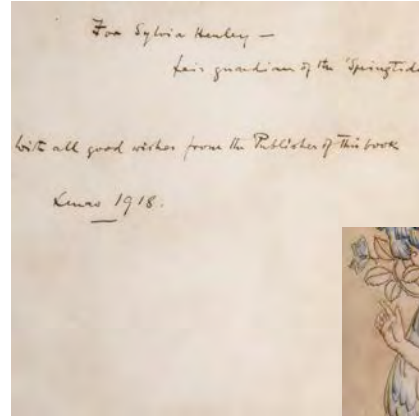 For Sylvia Henley –
guardian of the 'Springtide
With all good wishes from the Publisher of this book
Xmas 1918.